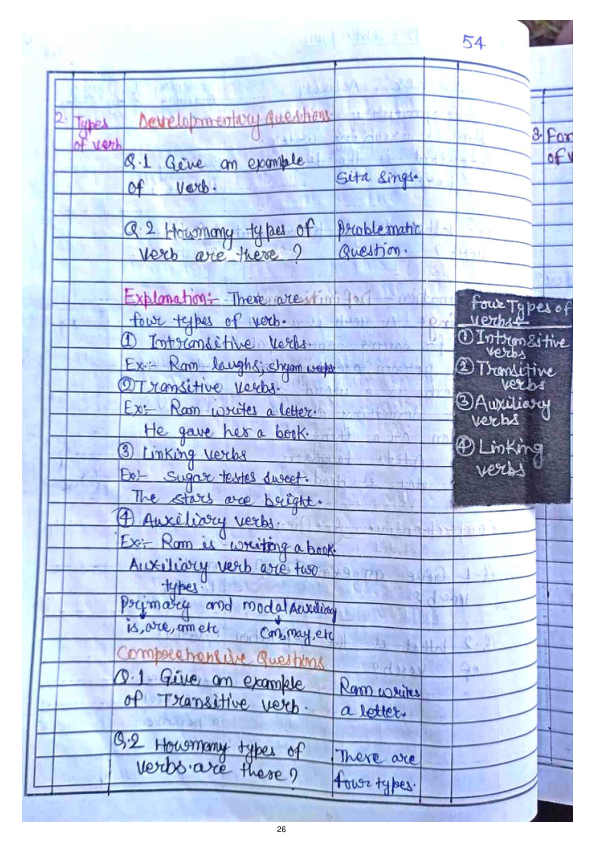 54
2. Types
of verb
Developmentary Questions
Q.1 Give an example
of verb.
Sita Sings.
Q.2 Howmany types of
verb are there?
Problematic
Question.
Explanation:- There are
four types of verb.
① Intransitive verbs.
Ex:- Ram laughs; shyam weeps
② Transitive verbs.
Ex:- Ram writes a letter.
He gave her a book.
③ Linking verbs
Ex:- Sugar testes sweet.
The stars are bright.
④ Auxiliary verbs.
Ex:- Ram is writing a book.
Auxiliary verb are two
types:-
primary and modal Auxiliary
is, are, am etc Can, may, etc
Four Types of
verbs
① Intransitive
verbs
② Transitive
verbs
③ Auxiliary
verbs
④ Linking
verbs
Comprehensive Questions
Q.1 Give an example
of Transitive verb.
Ram writes
a letter.
Q.2 Howmany types of
verbs are there?
There are
four types.
3. For
of v
26